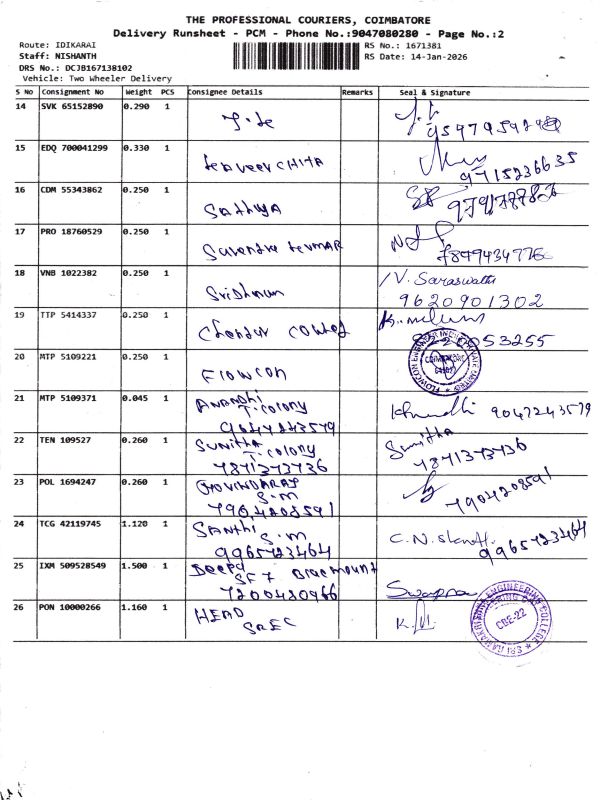 THE PROFESSIONAL COURIERS, COIMBATORE
Delivery Runsheet - PCM - Phone No.:9047080280 - Page No.:2
Route: IDIKARAI
RS No.: 1671381
Staff: NISHANTH
RS Date: 14-Jan-2026
DRS No.: DCJB167138102
Vehicle: Two Wheeler Delivery
S No Consignment No Weight PCS Consignee Details Remarks Seal & Signature
14 SVK 65152890 0.290 1
15 EDQ 700041299 0.330 1
9715236635
16 CDM 55343862 0.250 1 Sathya
17 PRO 18760529 0.250 1
18 VNB 1022382 0.250 1 V. Saraswathi
9620901302
19 TTP 5414337 0.250 1
20 MTP 5109221 0.250 1 Flowcon
21 MTP 5109371 0.045 1 Anandhi 9047243579
T. Colony
22 TEN 109527 0.260 1 Sunitha Sunitha
T. Colony
7871373736 7871373736
23 POL 1694247 0.260 1 Govindaraj
S.M
7904208591 7904208591
24 TCG 42119745 1.120 1 Santhi
S.M
9965723464 9965723464
25 IXM 509528549 1.500 1 Deepa
7200420966 Swapna
26 PON 10000266 1.160 1 HEAD
SREC
SRI RAMAKRISHNA ENGINEERING COLLEGE
CBE-22